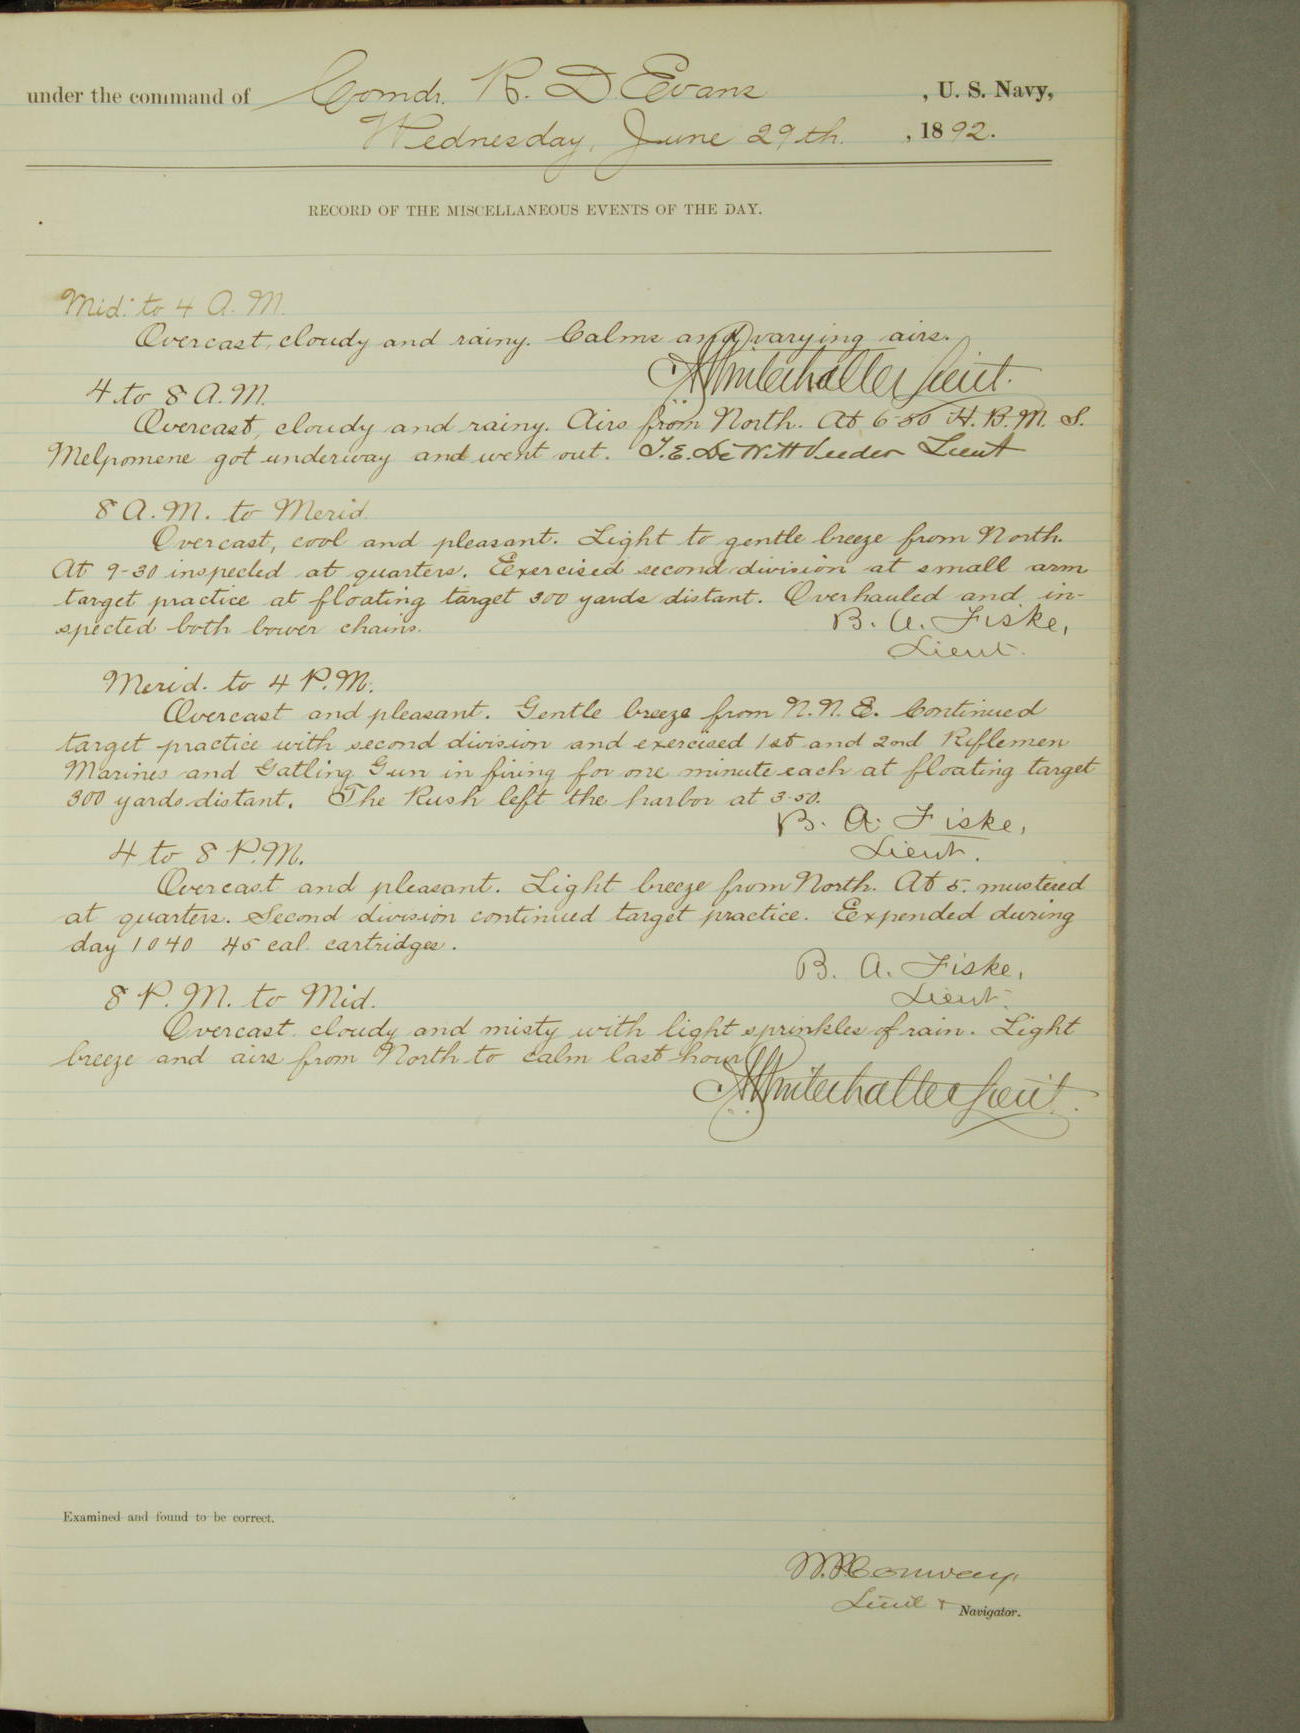 under the command of Comdr. R. D. Evans , U. S. Navy,
Wednesday, June 29th. , 1892.
RECORD OF THE MISCELLANEOUS EVENTS OF THE DAY.
Mid. to 4 A. M.
Overcast, cloudy and rainy. Calms and varying airs.
Winterhalter Lieut.
4 to 8 A. M.
Overcast, cloudy and rainy. Airs from North. At 6-50 H. B. M. S.
Melpomene got underway and went out. T. E. DeWitt Veeder Lieut
8 A. M. to Merid.
Overcast, cool and pleasant. Light to gentle breeze from North.
At 9-30 inspected at quarters. Exercised second division at small arm
target practice at floating target 300 yards distant. Overhauled and in-
spected both bower chains.
B. A. Fiske,
Lieut.
Merid. to 4 P. M.
Overcast and pleasant. Gentle breeze from N. N. E. Continued
target practice with second division and exercised 1st and 2nd Riflemen
Marines and Gatling Gun in firing for one minute each at floating target
300 yards distant. The Rush left the harbor at 3-50.
B. A. Fiske,
Lieut.
4 to 8 P. M.
Overcast and pleasant. Light breeze from North. At 5. mustered
at quarters. Second division continued target practice. Expended during
day 1040 45 cal. cartridges.
B. A. Fiske,
Lieut.
8 P. M. to Mid.
Overcast cloudy and misty with light sprinkles of rain. Light
breeze and airs from North to calm last hour
Winterhalter Lieut.
Examined and found to be correct.
W. P. Conway
Lieut & Navigator.